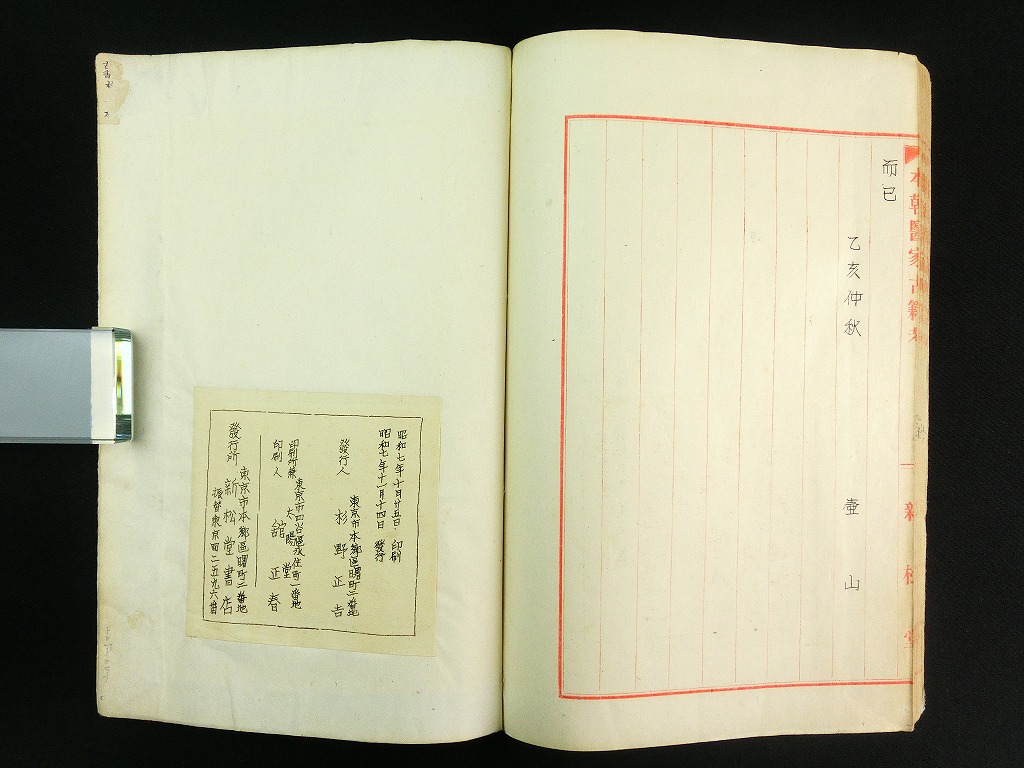 本朝醫家古籍考
新松堂
而已
乙亥仲秋
壺山
昭和七年十月廿五日・印刷
昭和七年十一月十四日 發行
東京市本郷區曙町二番地
發行人 杉野正吉
東京市四谷區永住町一番地
印刷所兼 太陽堂
印刷人 舘正春
東京市本郷區曙町二番地
發行所 新松堂書店
振替東京四二五九六番